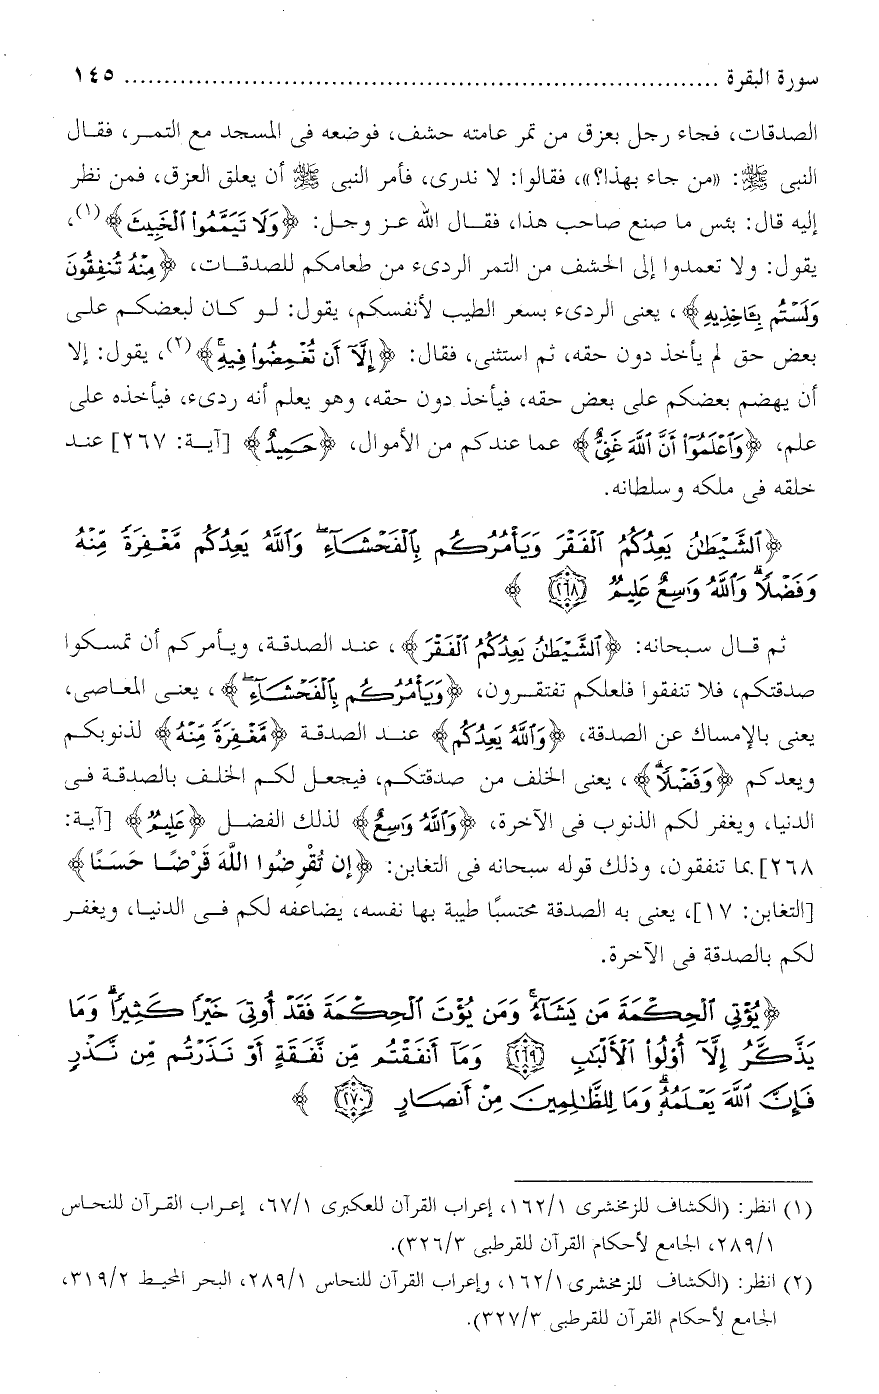 سورة البقرة ........................................................................ ١٤٥
الصدقات، فجاء رجل بعزق من تمر عامته حشف، فوضعه فى المسجد مع التمر، فقال
النبى ﷺ: «من جاء بهذا؟»، فقالوا: لا ندرى، فأمر النبى ﷺ أن يعلق العزق، فمن نظر
إليه قال: بئس ما صنع صاحب هذا، فقال الله عز وجل: ﴿وَلَا تَيَمَّمُوا۟ ٱلْخَبِيثَ﴾(١)،
يقول: ولا تعمدوا إلى الحشف من التمر الردىء من طعامكم للصدقات، ﴿مِنْهُ تُنفِقُونَ
وَلَسْتُم بِـَٔاخِذِيهِ﴾، يعنى الردىء بسعر الطيب لأنفسكم، يقول: لو كان لبعضكم على
بعض حق لم يأخذ دون حقه، ثم استثنى، فقال: ﴿إِلَّآ أَن تُغْمِضُوا۟ فِيهِ ۚ﴾(٢)، يقول: إلا
أن يهضم بعضكم على بعض حقه، فيأخذ دون حقه، وهو يعلم أنه ردىء، فيأخذه على
علم، ﴿وَٱعْلَمُوٓا۟ أَنَّ ٱللَّهَ غَنِىٌّ﴾ عما عندكم من الأموال، ﴿حَمِيدٌ﴾ [آية: ٢٦٧] عند
خلقه فى ملكه وسلطانه.
﴿ٱلشَّيْطَـٰنُ يَعِدُكُمُ ٱلْفَقْرَ وَيَأْمُرُكُم بِٱلْفَحْشَآءِ ۖ وَٱللَّهُ يَعِدُكُم مَّغْفِرَةً مِّنْهُ
وَفَضْلًا ۗ وَٱللَّهُ وَٰسِعٌ عَلِيمٌ ٢٦٨﴾
ثم قال سبحانه: ﴿ٱلشَّيْطَـٰنُ يَعِدُكُمُ ٱلْفَقْرَ﴾، عند الصدقة، ويأمركم أن تمسكوا
صدقتكم، فلا تنفقوا فلعلكم تفتقرون، ﴿وَيَأْمُرُكُم بِٱلْفَحْشَآءِ ۖ﴾، يعنى المعاصى،
يعنى بالإمساك عن الصدقة، ﴿وَٱللَّهُ يَعِدُكُم﴾ عند الصدقة ﴿مَّغْفِرَةً مِّنْهُ﴾ لذنوبكم
ويعدكم ﴿وَفَضْلًا ۗ﴾، يعنى الخلف من صدقتكم، فيجعل لكم الخلف بالصدقة فى
الدنيا، ويغفر لكم الذنوب فى الآخرة، ﴿وَٱللَّهُ وَٰسِعٌ﴾ لذلك الفضل ﴿عَلِيمٌ﴾ [آية:
٢٦٨] بما تنفقون، وذلك قوله سبحانه فى التغابن: ﴿إِن تُقْرِضُوا اللَّهَ قَرْضًا حَسَنًا﴾
[التغابن: ١٧]، يعنى به الصدقة محتسبًا طيبة بها نفسه، يضاعفه لكم فى الدنيا، ويغفر
لكم بالصدقة فى الآخرة.
﴿يُؤْتِى ٱلْحِكْمَةَ مَن يَشَآءُ ۚ وَمَن يُؤْتَ ٱلْحِكْمَةَ فَقَدْ أُوتِىَ خَيْرًا كَثِيرًا ۗ وَمَا
يَذَّكَّرُ إِلَّآ أُو۟لُوا۟ ٱلْأَلْبَـٰبِ ٢٦٩ وَمَآ أَنفَقْتُم مِّن نَّفَقَةٍ أَوْ نَذَرْتُم مِّن نَّذْرٍ
فَإِنَّ ٱللَّهَ يَعْلَمُهُۥ ۗ وَمَا لِلظَّـٰلِمِينَ مِنْ أَنصَارٍ ٢٧٠﴾
(١) انظر: (الكشاف للزمخشرى ١٦٢/١، إعراب القرآن للعكبرى ٦٧/١، إعراب القرآن للنحاس
٢٨٩/١، الجامع لأحكام القرآن للقرطبى ٣٢٦/٣).
(٢) انظر: (الكشاف للزمخشرى ١٦٢/١، وإعراب القرآن للنحاس ٢٨٩/١، البحر المحيط ٣١٩/٢،
الجامع لأحكام القرآن للقرطبى ٣٢٧/٣).